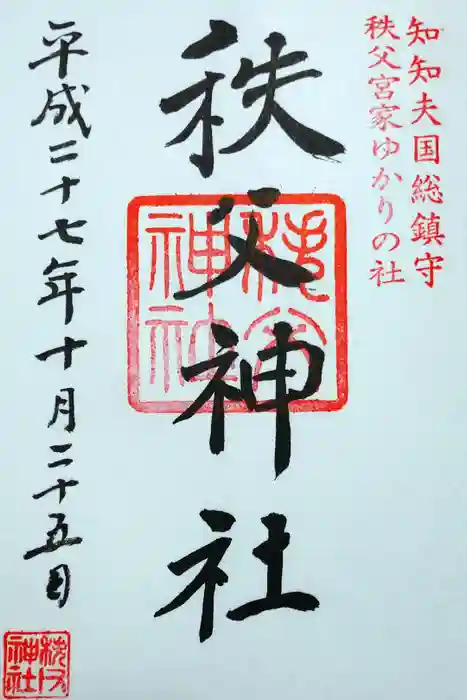 知知夫国総鎮守
秩父宮家ゆかりの社
秩父神社
秩父神社
平成二十七年十月二十五日
秩父神社